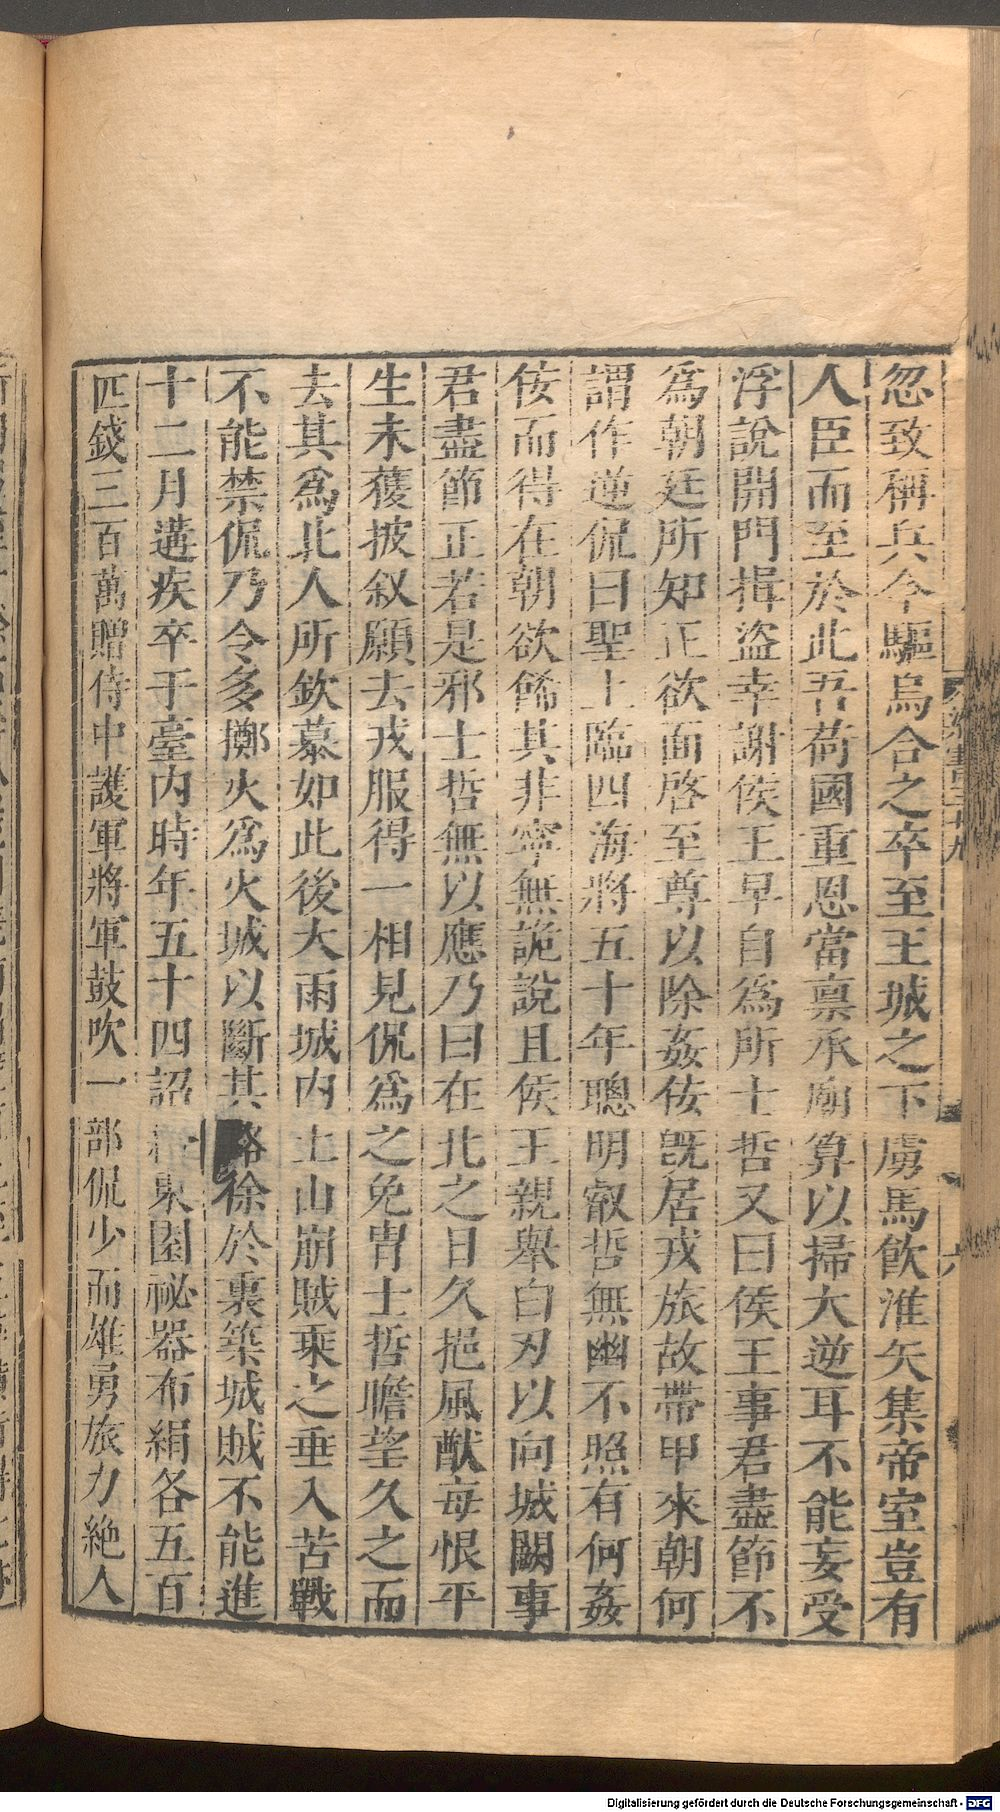 忽致稱兵今驅烏合之卒至王城之下虜馬飲淮矢集帝室豈有
人臣而至於此吾荷國重恩當稟承廟算以掃大逆耳不能妄受
浮說開門揖盜幸謝侯王早自為所士哲又曰侯王事君盡節不
為朝廷所知正欲面啓至尊以除姦佞既居戎旅故帶甲來朝何
謂作逆侃曰聖上臨四海將五十年聰明叡哲無幽不照有何姦
佞而得在朝欲飾其非寧無詭說且侯王親舉白刃以向城闕事
君盡節正若是邪士哲無以應乃曰在北之日久挹風猷每恨平
生未獲披叙願去戎服得一相見侃為之免冑士哲瞻望久之而
去其為北人所欽慕如此後大雨城內土山崩賊乘之垂入苦戰
不能禁侃乃令多擲火為火城以斷其路徐於裏築城賊不能進
十二月遘疾卒于臺內時年五十四詔給東園祕器布絹各五百
匹錢三百萬贈侍中護軍將軍鼓吹一部侃少而雄勇旅力絶人
Digitalisierung gefördert durch die Deutsche Forschungsgemeinschaft - DFG